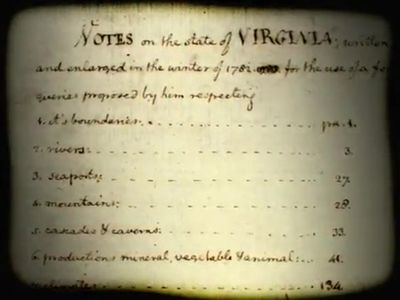 NOTES on the state of VIRGINIA; written
and enlarged in the winter of 1782. for the use of a for
queries proposed by him respecting
1. it's boundaries. . . . . . . . . . pa. 1.
2. rivers: . . . . . . . . . . 3.
3. seaports: . . . . . . . . . . 27.
4. mountains: . . . . . . . . . . 28.
5. cascades & caverns: . . . . . . . . . . 33.
6. productions mineral, vegetable & animal: . . . 41.
climate: . . . . . . . . . . 134.